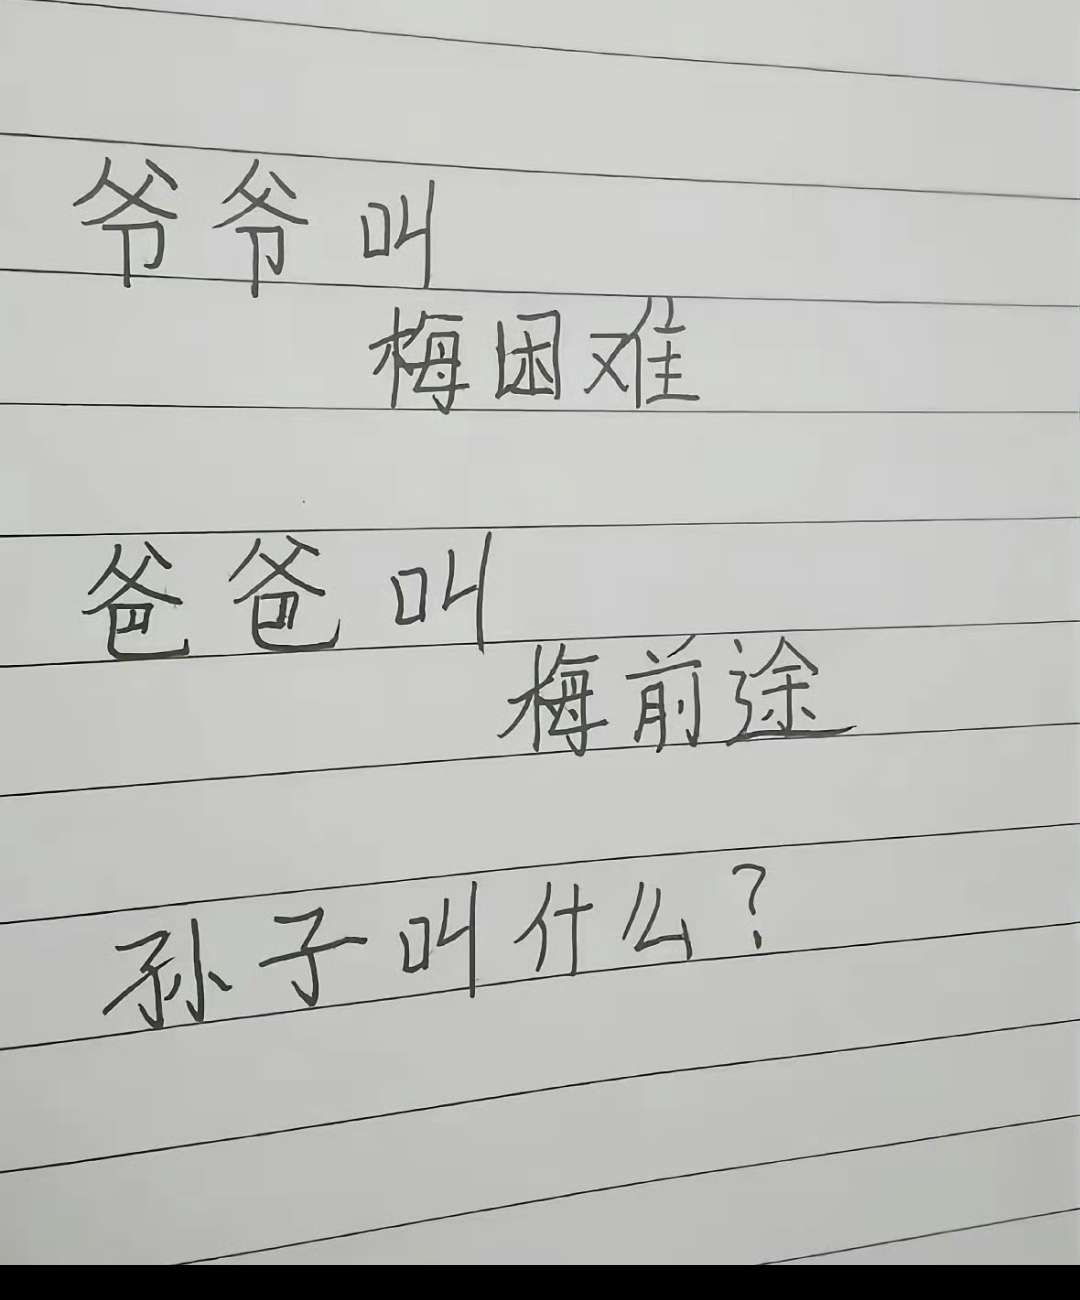 爷爷叫
梅困难
爸爸叫
梅前途
孙子叫什么?